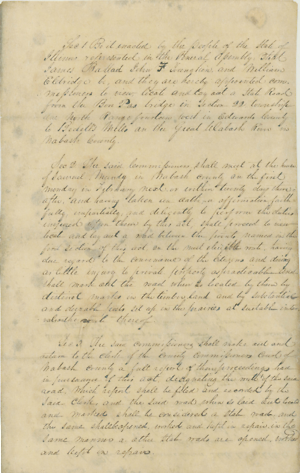 Sec 1 Be it enacted by the people of the State of
Illinois represented in the General Assembly That
Isaac Ballard John F Vaughan and William
Eldridge be, and they are hereby appointed com-
missioners to view locate and lay out a State Road
from the Bon Pas bridge in Section 33 Township
in Edwards County
to Mills on the Great Wabash River in
Wabash County.
Sec 2 The said Commissioners shall meet at the house
of in Wabash County on the first
monday in next, or within twenty days there
after, and having taken an oath or affirmation faith
fully impartially and diligently to perform the duties
required upon them by this act, shall proceed to view
locate and lay out a road between the points named in the
first Section of this act on the most eligible route, having
due regard to the convenience of the citizens and doing
as little injury to private property as practicable
shall mark out the road when so located by
marks in the timber land and by substantial
and durable posts set up in the prairies at suitable inter
vals
Sec 3. The said commissioners shall make out and
return to the clerk of the County Commissioners Court of
Wabash county a full report of their proceedings had
in pursuance of this act, designating the route of the said
road. Which report shall be filed and recorded by the
said Clerk. and the said road when so laid out located
and marked shall be considered a State road, and
the same shall be opened, worked and kept in repair in the
same manner as other State roads are opened, worked
and kept in repair.